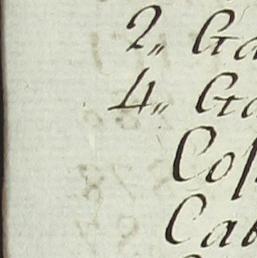 2„ Ga
4„ Ga
Coſ
Cab